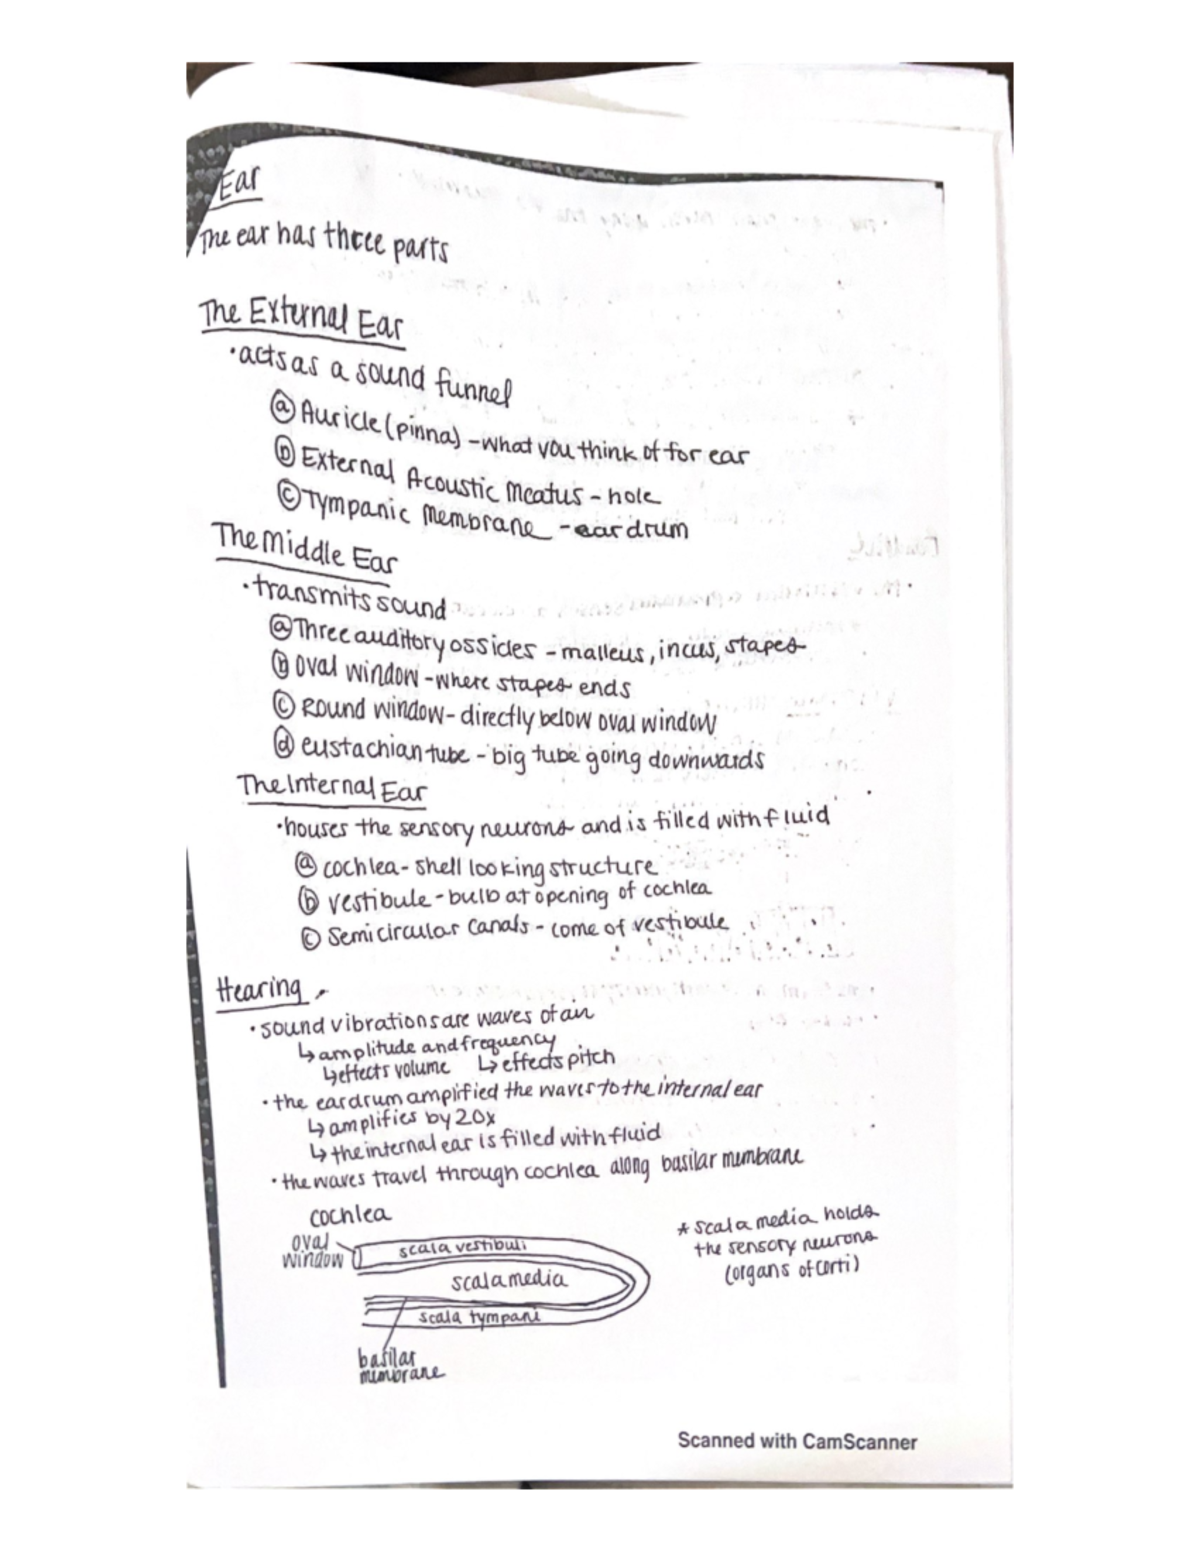 Ear
The ear has three parts
The External Ear
• acts as a sound funnel
ⓐ Auricle (pinna) - what you think of for ear
ⓑ External Acoustic Meatus - hole
ⓒ Tympanic Membrane - eardrum
The Middle Ear
• transmits sound
ⓐ Three auditory ossicles - malleus, incus, stapes
ⓑ Oval window - where stapes ends
ⓒ Round window - directly below oval window
ⓓ eustachian tube - big tube going downwards
The Internal Ear
• houses the sensory neurons and is filled with fluid
ⓐ cochlea - shell looking structure
ⓑ vestibule - bulb at opening of cochlea
ⓒ Semicircular Canals - come of vestibule
Hearing
• sound vibrations are waves of air
↳ amplitude and frequency
↳ effects volume ↳ effects pitch
• the eardrum amplified the waves to the internal ear
↳ amplifies by 20x
↳ the internal ear is filled with fluid
• the waves travel through cochlea along basilar membrane
cochlea
oval
window
scala vestibuli
scala media
scala tympani
basilar
membrane
* scala media holds
the sensory neurons
(organs of corti)
Scanned with CamScanner